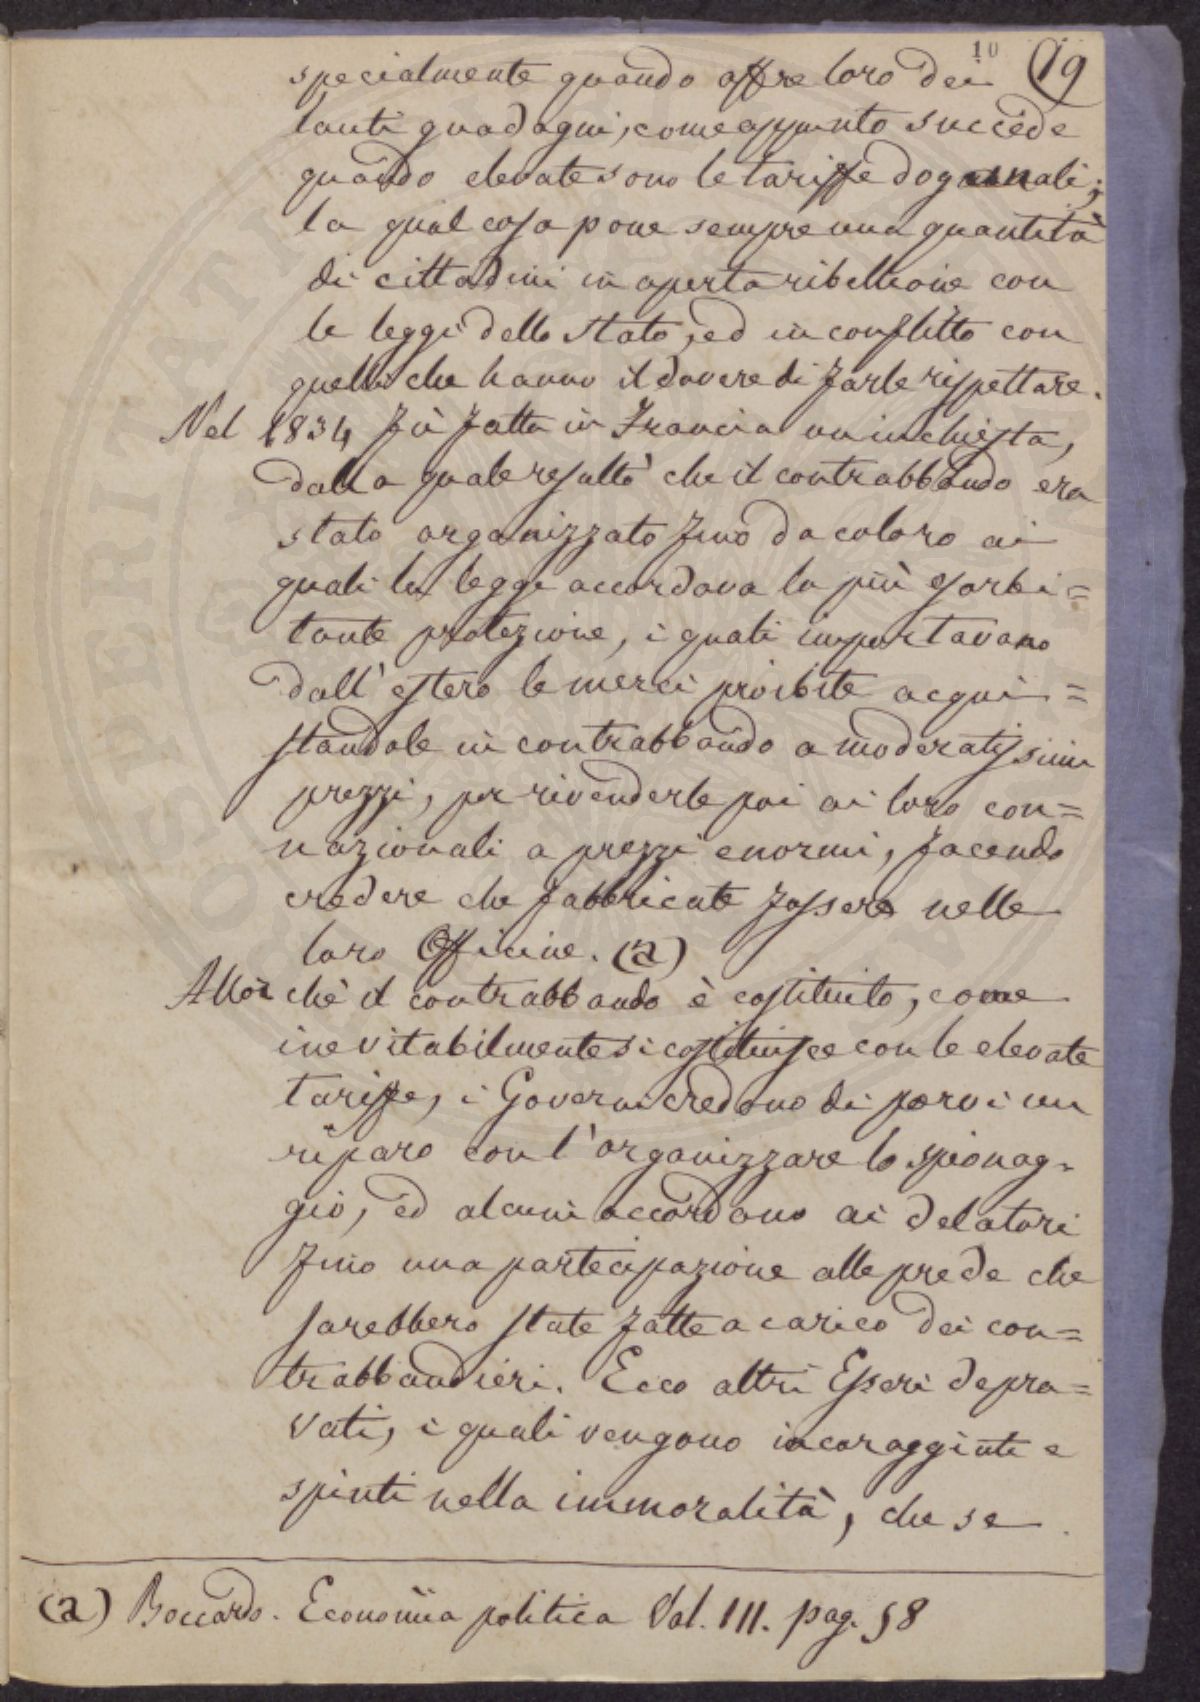 10 19
specialmente quando offre loro dei
lauti guadagni, come appunto succede
quando elevate sono le tariffe doganali;
la qual cosa pone sempre una quantità
di cittadini in aperta ribellione con
le leggi dello Stato, ed in conflitto con
quelli che hanno il dovere di farle rispettare.
Nel 1834 fù fatta in Francia un inchiesta,
dalla quale resultò che il contrabbando era
stato organizzato fino da coloro ai
quali la legge accordava la più esorbi=
tante protezione, i quali importavano
dall' estero le merci proibite acqui=
standole in contrabbando a moderatissimi
prezzi, per rivenderle poi ai loro con=
nazionali a prezzi enormi, facendo
credere che fabbricate fossero nelle
loro Officine. (a)
Allor chè il contrabbando è costituito, come
inevitabilmente si costituisce con le elevate
tariffe, i Governi credono di porvi un
riparo con l'organizzare lo spionag=
gio, ed alcuni accordano ai delatori
fino una partecipazione alle prede che
sarebbero state fatte a carico dei con=
trabbandieri. Ecco altri Esseri depra=
vati, i quali vengono incoraggiati e
spinti nella immoralità, che se
(a) Boccardo. Economia politica Vol. III. pag. 58
SPERITATI